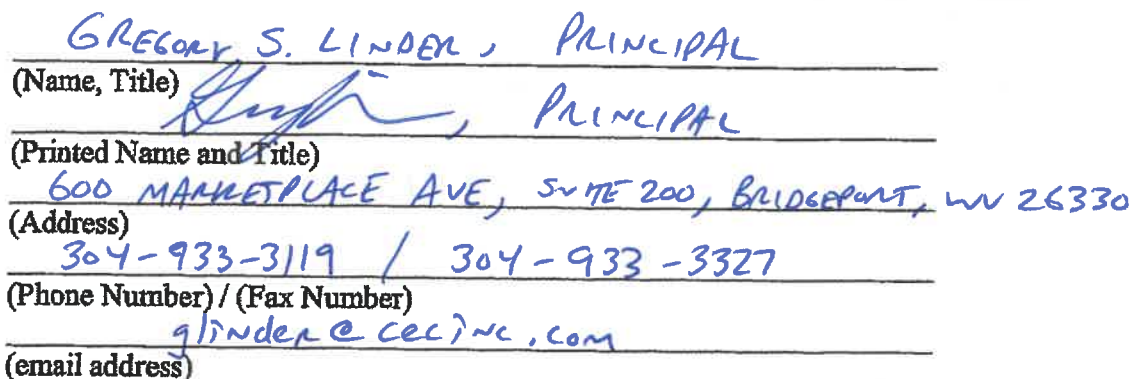 GREGORY S. LINDER, PRINCIPAL
(Name, Title)
, PRINCIPAL
(Printed Name and Title)
600 MARKETPLACE AVE, SUITE 200, BRIDGEPORT, WV 26330
(Address)
304-933-3119 / 304-933-3327
(Phone Number) / (Fax Number)
glinder@cecinc.com
(email address)